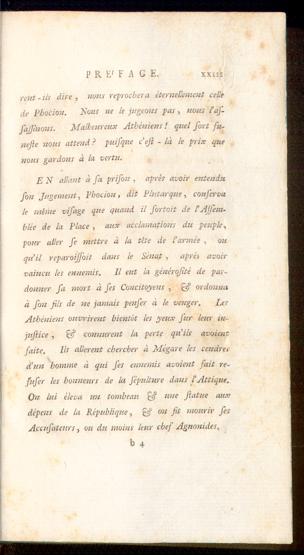 PRÉFACE. xxiii
rent-ils dire, nous reprochera éternellement celle
de Phocion. Nous ne le jugeons pas, nous l'as-
sassinons. Malheureux Athéniens! quel sort fu-
neste nous attend? puisque c'est-là le prix que
nous gardons à la vertu.
EN allant à sa prison, après avoir entendu
son Jugement, Phocion, dit Plutarque, conserva
le même visage que quand il sortoit de l'Assem-
blée de la Place, aux acclamations du peuple,
pour aller se mettre à la tête de l'armée, ou
qu'il reparoissoit dans le Sénat, après avoir
vaincu les ennemis. Il eut la générosité de par-
donner sa mort à ses Concitoyens, & ordonna
à son fils de ne jamais penser à le venger. Les
Athéniens ouvrirent bientôt les yeux sur leur in-
justice, & connurent la perte qu'ils avoient
faite. Ils allerent chercher à Mégare les cendres
d'un homme à qui ses ennemis avoient fait re-
fuser les honneurs de la sépulture dans l'Attique.
On lui éleva un tombeau & une statue aux
dépens de la République, & on fit mourir ses
Accusateurs, ou du moins leur chef Agnonides.
b 4